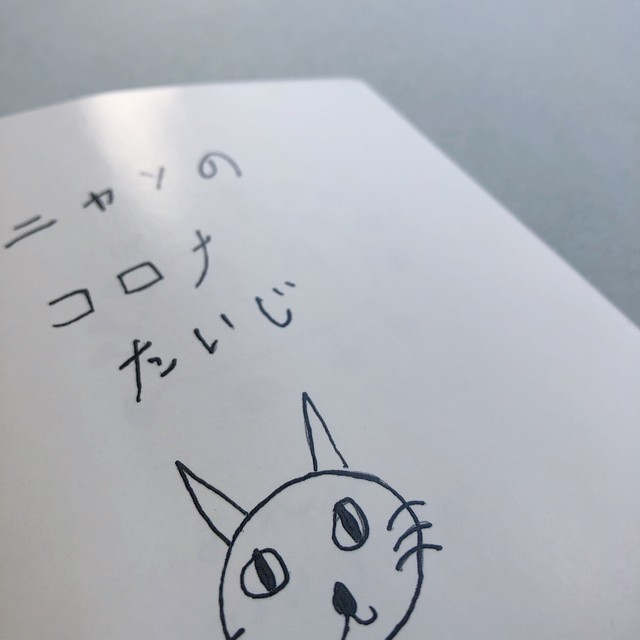 ニャンの
コロナ
たいじ